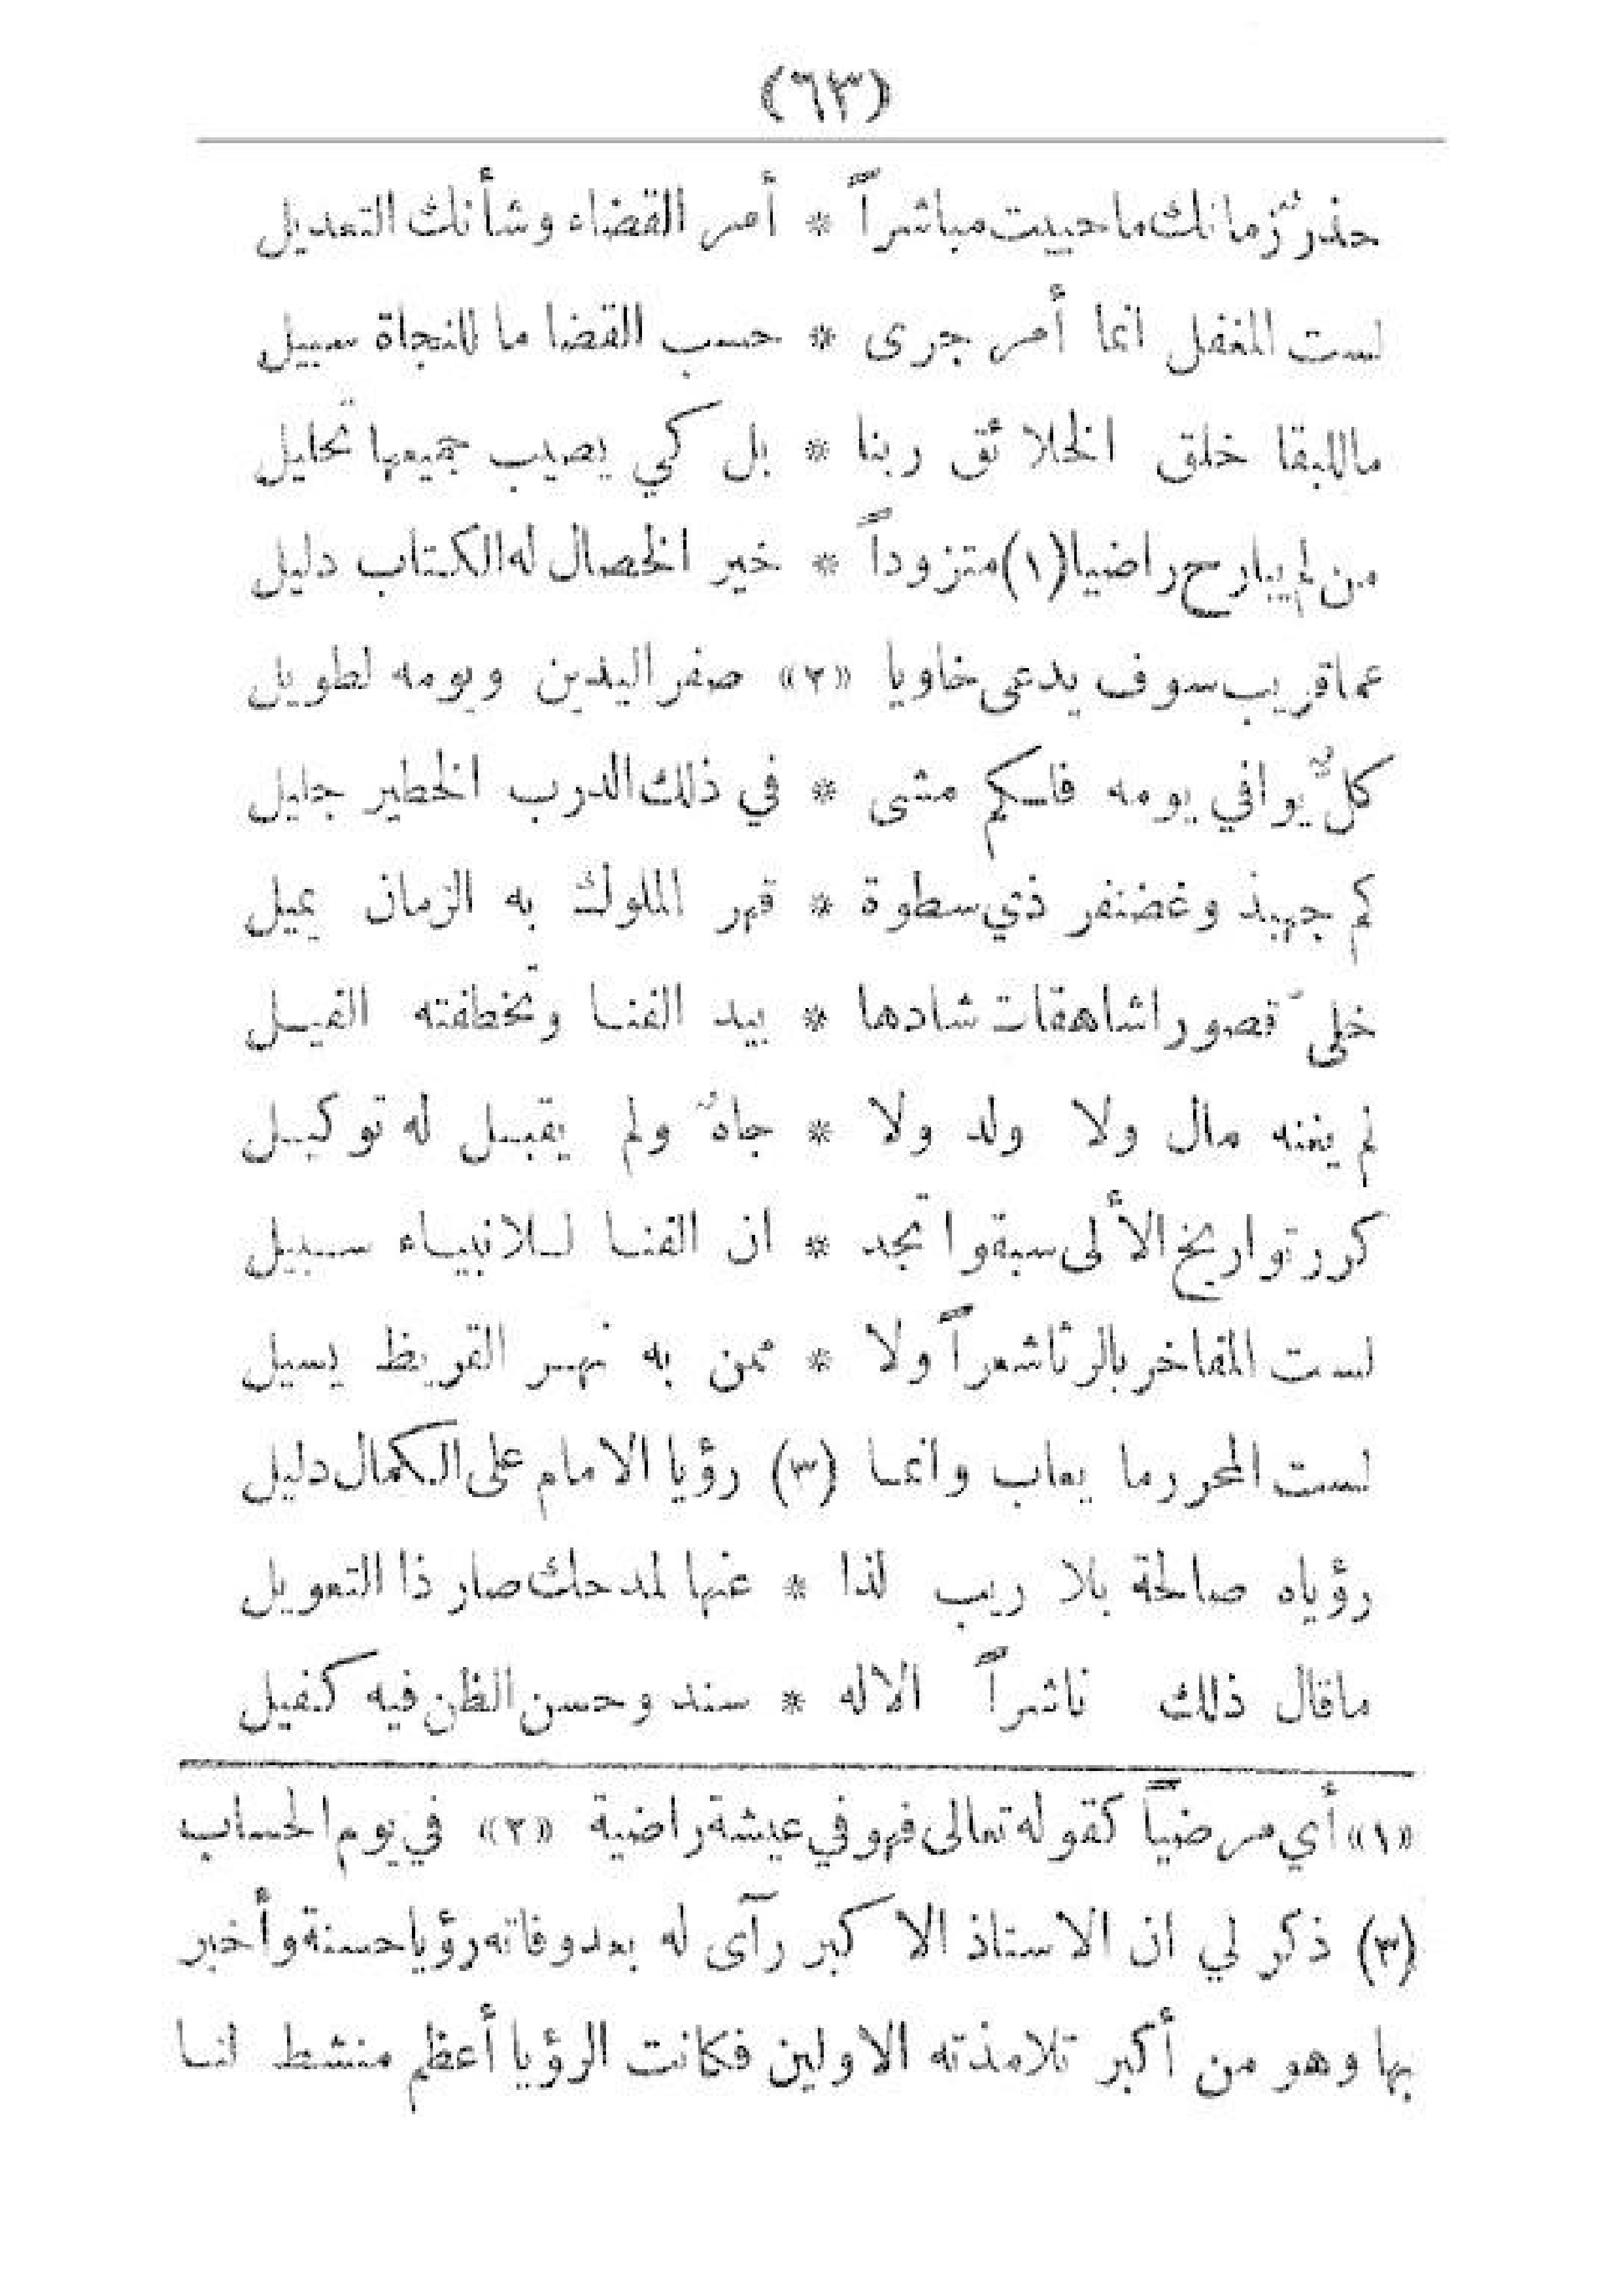 (٦٣)
حذرٌ زمانك ما حييت مباشراً * أمر القضاء وشأنك التعديل
لست المغفل انما أمر جرى * حسب القضا ما للنجاة سبيل
ماللبقا خلق الخلائق ربنا * بل كي يصيب جميعها تحليل
من لم يبارح راضيا(١) متزوداً * خير الخصال له الكتاب دليل
عما قريب سوف يدعى خاويا «٢» صفر اليدين ويومه لطويل
كلٌّ يوافي يومه فلكم مشى * في ذلك الدرب الخطير جليل
كم جهبذ وغضنفر ذي سطوة * قهر الملوك به الزمان يميل
خلىّ قصورا شاهقات شادها * بيد الفنا وتخطفته الغيل
لم يغنه مال ولا ولد ولا * جاهٌ ولم يقبل له توكيل
كرر تواريخ الألى سبقوا تجد * ان الفنا للانبياء سبيل
لست المفاخر بالرثا شعراً ولا * ممن به نهر القريظ يسيل
لست المحرر ما يعاب وانما (٣) رؤيا الامام على الكمال دليل
رؤياه صالحة بلا ريب لذا * عنها لمدحك صار ذا التعويل
ماقال ذلك ناشراً الا له * سند وحسن الظن فيه كفيل
«١» أي مرضياً كقوله تعالى فهو في عيشة راضية «٢» في يوم الحساب
(٣) ذكر لي ان الاستاذ الاكبر رآى له بعد وفاته رؤيا حسنة وأخبر
بها وهو من أكبر تلامذته الاولين فكانت الرؤيا أعظم منشط لنا